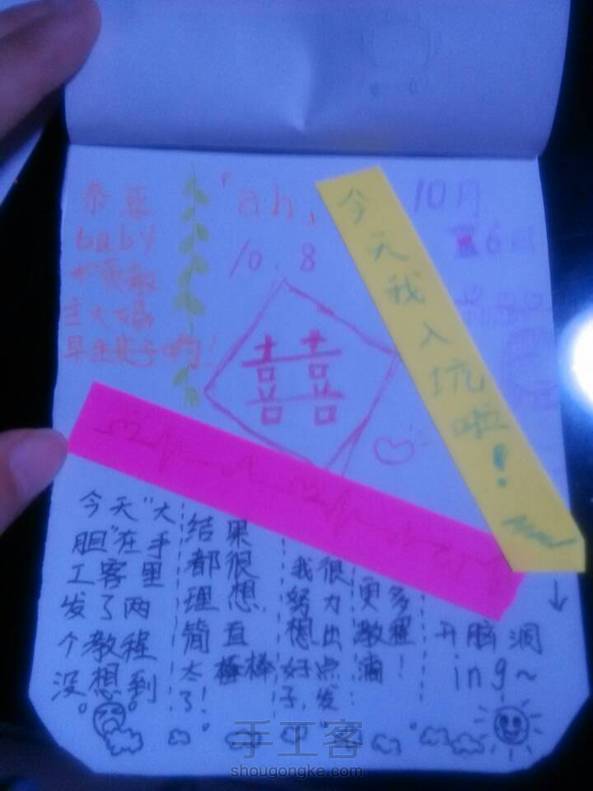 恭喜
baby
和黄教
主大婚
早生贵子哟！
「ah」
10.8
囍
10月
今天我入坑啦！
今天“大
胆”在手
工客里
发了两
个教程
没想到。
结果
都很
理想
简直
太棒棒
了！
我很
努力
想出
好点
子，发
更多
教程
滴！
开脑洞
ing~
手工客
shougongke.com